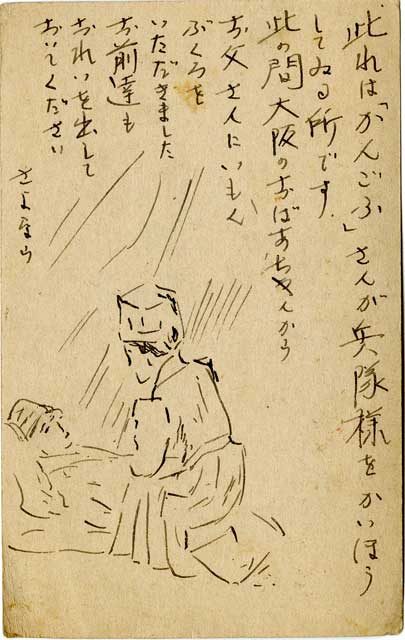 此れは「かんごふ」さんが兵隊様をかいほう
してゐる所です
此の間大阪のおばあちゃんから
お父さんにいもん
ぶくろを
いただきました
お前達も
おれいを出して
おいてください
さよなら